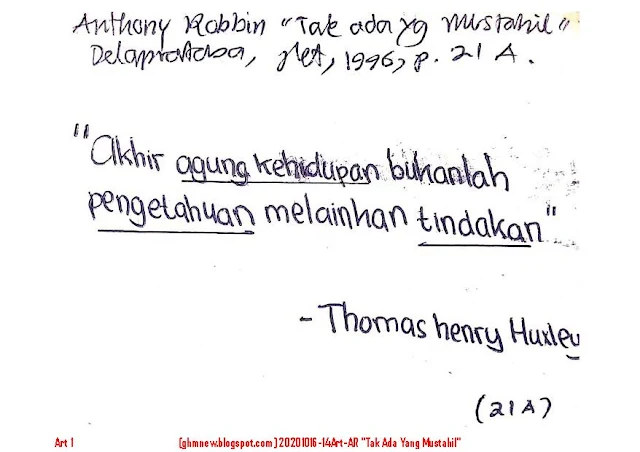 Anthony Robbin "Tak ada yg Mustahil"
Delapratasa, Net, 1996, p. 21 A.
"Akhir agung kehidupan bukanlah
pengetahuan melainkan tindakan"
- Thomas henry Huxley
(21A)
Art 1 [ghmnew.blogspot.com] 20201016-14Art-AR "Tak Ada Yang Mustahil"